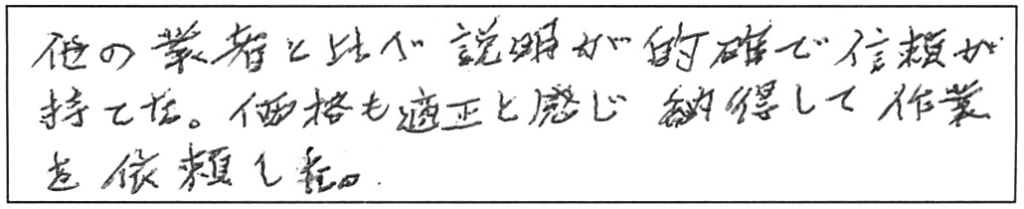 他の業者と比べ説明が的確で信頼が
持てた。価格も適正と感じ 納得して作業
を依頼した。